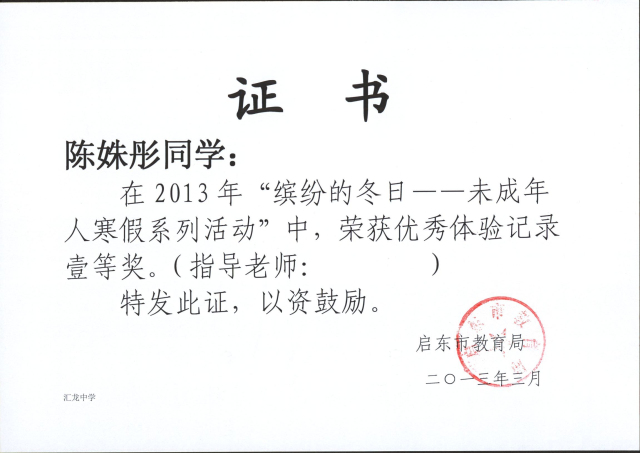 证 书
陈姝彤同学：
在 2013 年“缤纷的冬日——未成年
人寒假系列活动”中，荣获优秀体验记录
壹等奖。(指导老师: )
特发此证，以资鼓励。
启东市教育局
二〇一三年三月
汇龙中学
启东市教育局